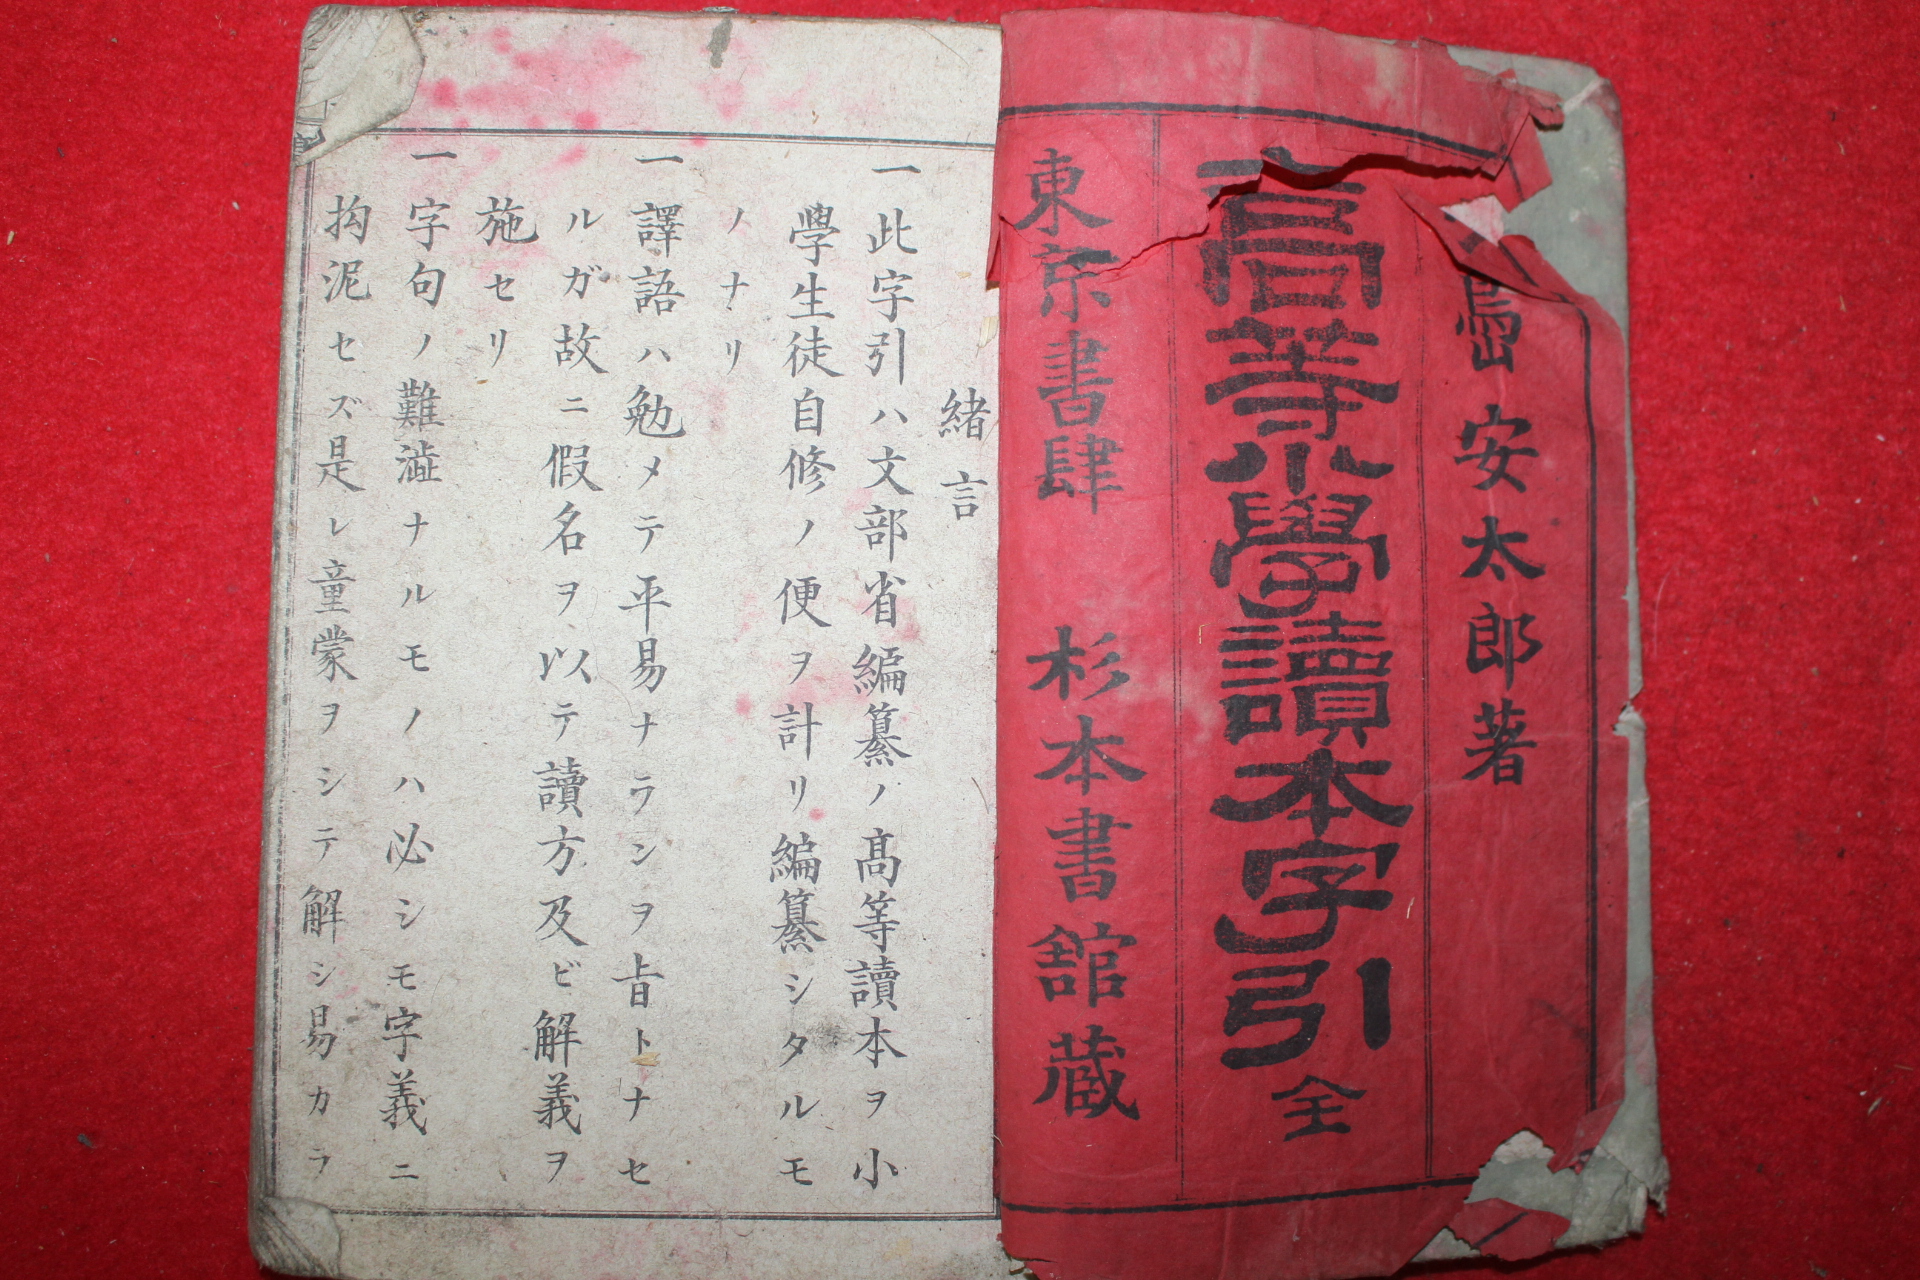 島安太郎著
高等小學讀本字引 全
東京書肆 杉本書舘蔵
緒言
一此字引ハ文部省編纂ノ高等讀本ヲ小
學生徒自修ノ便ヲ計リ編纂シタルモ
ノナリ
一譯語ハ勉メテ平易ナランヲ旨トナセ
ルガ故ニ假名ヲ以テ讀方及ビ解義ヲ
施セリ
一字句ノ難澁ナルモノハ必シモ字義ニ
拘泥セズ是レ童蒙ヲシテ解シ易カラ